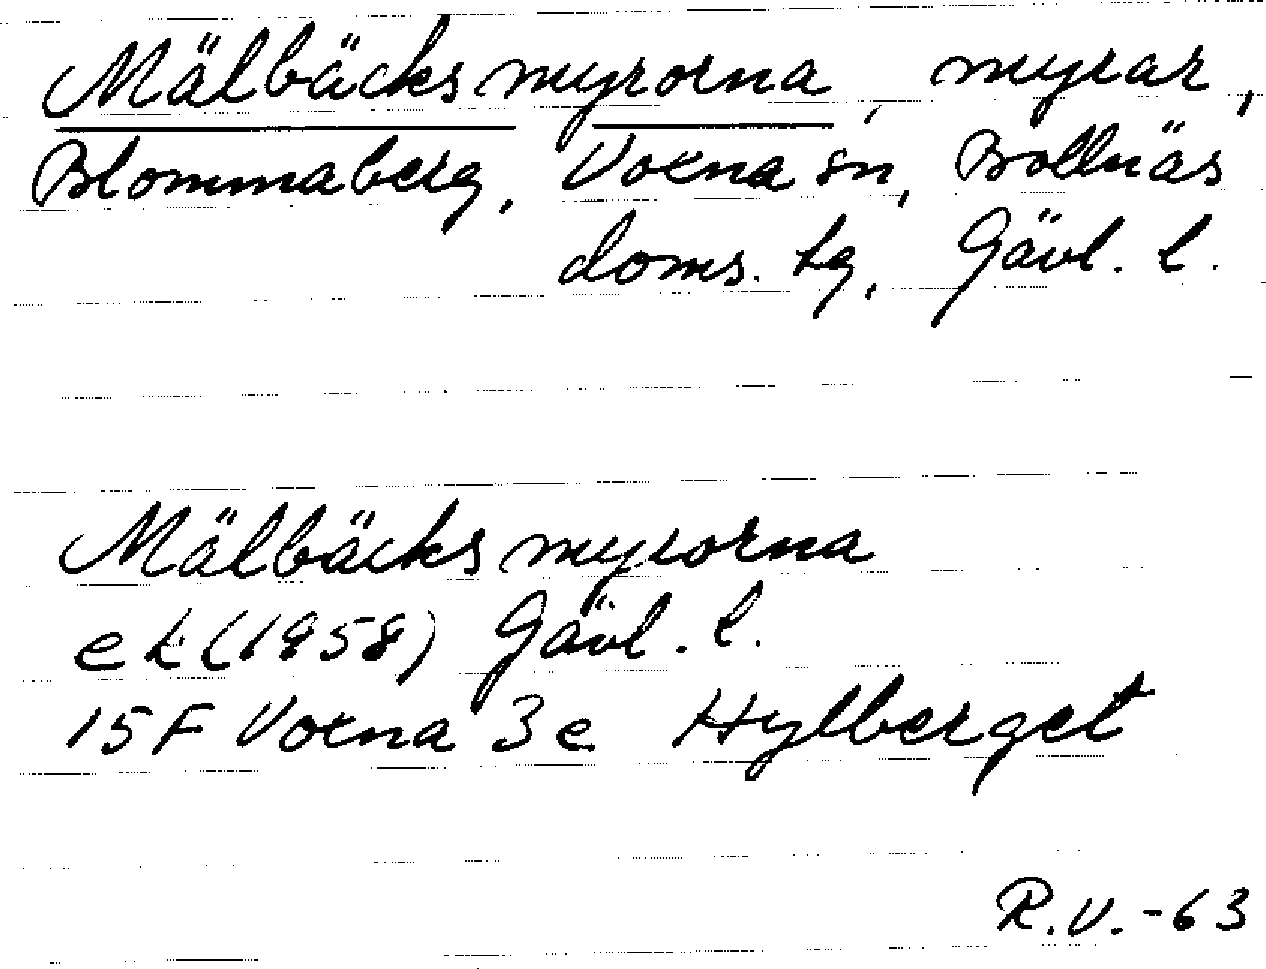 Mälbäcksmyrorna, myrar,
Blommaberg, Voxna sn, Bollnäs
doms. tg, Gävl. l.
Mälbäcksmyrorna
ek (1958) Gävl. l.
15F Voxna 3e Hylberget
R.V.-63